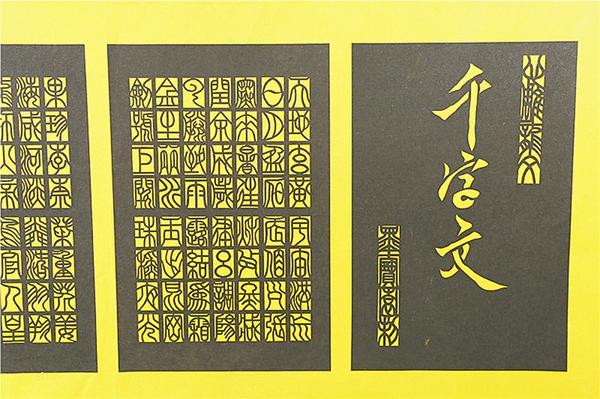 千字文
天地玄黃宇宙洪荒
日月盈昃辰宿列張
寒來暑往秋收冬藏
閏餘成歲律呂調陽
雲騰致雨露結為霜
金生麗水玉出崑岡
劍號巨闕珠稱夜光
果珍李柰菜重芥薑
海鹹河淡鱗潛羽翔
龍師火帝鳥官人皇